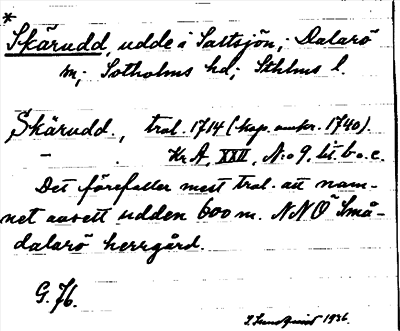 *
Skärudd, udde i Saltsjön, Dalarö
m; Sotholms hd; Sthlms l.
Skärudd., trol. 1714 (kop. omkr. 1740).
– . Kr. A, XXII, No 9, lit. b o. c.
Det förefaller mest trol. att nam-
net avsett udden 600 m. NNO Små-
dalarö herrgård.
G. 76.
1936.